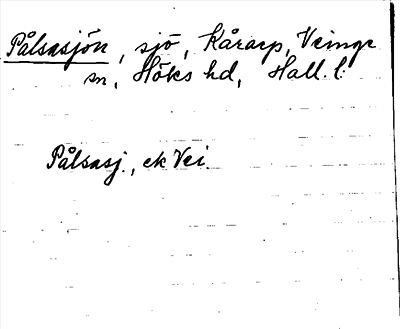 Pålsasjön, sjö, Kårarp, Veinge
sn, Höks hd, Hall. l.
Pålsasj., ek Vei.